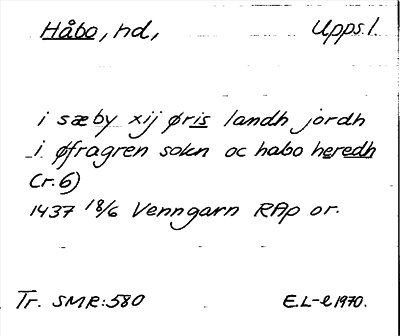 Håbo, hd, Upps.l.
i sæby xij øris landh jordh
i øfragren sokn oc habo heredh
(r.6)
1437 18/6 Venngarn RAp or.
Tr. SMR:580 E.L-l 1970.